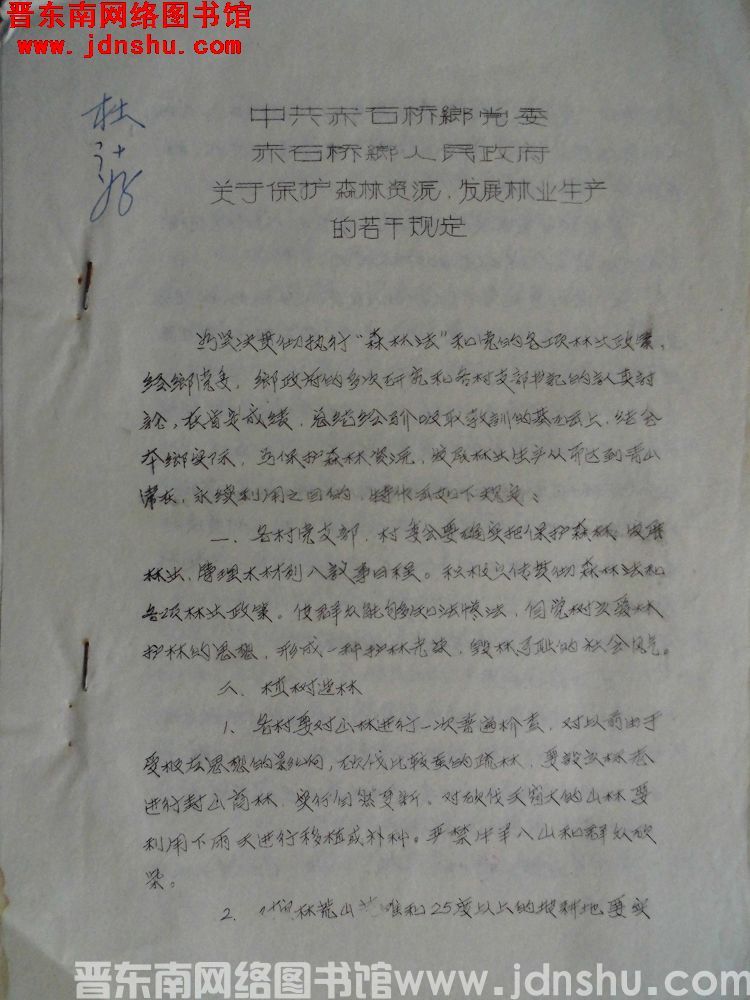 晋东南网络图书馆
www.jdnshu.com
杜
中共赤石桥鄉党委
赤石桥鄉人民政府
关于保护森林资源、发展林业生产
的若干规定
为坚决贯彻执行“森林法”和党的各项林业政策，
经鄉党委，鄉政府的多次研究和各村支部书记的认真讨
论，在肯定成绩，总结经验吸取教訓的基础上，结合
本鄉实际，为保护森林资源，发展林业生产从而达到青山
常在，永续利用之目的，特作出如下规定：
一、各村党支部，村委会要确实把保护森林、发展
林业，管理木材列入议事日程。积极宣传贯彻森林法和
各项林业政策。使群众能够知法懂法，自觉树立爱林
护林的思想，形成一种护林光荣，毁林可耻的社会风气。
二、植树造林
1、各村要对山林进行一次普遍检查，对以前由于
受极左思想的影响，砍伐比较重的疏林，要
进行封山育林，实行自然更新。对砍伐天窗大的山林要
利用下雨天进行移植或补种。严禁牛羊入山和群众砍
柴。
2、林荒山 和25度以上的坡耕地要实
晋东南网络图书馆www.jdnshu.com